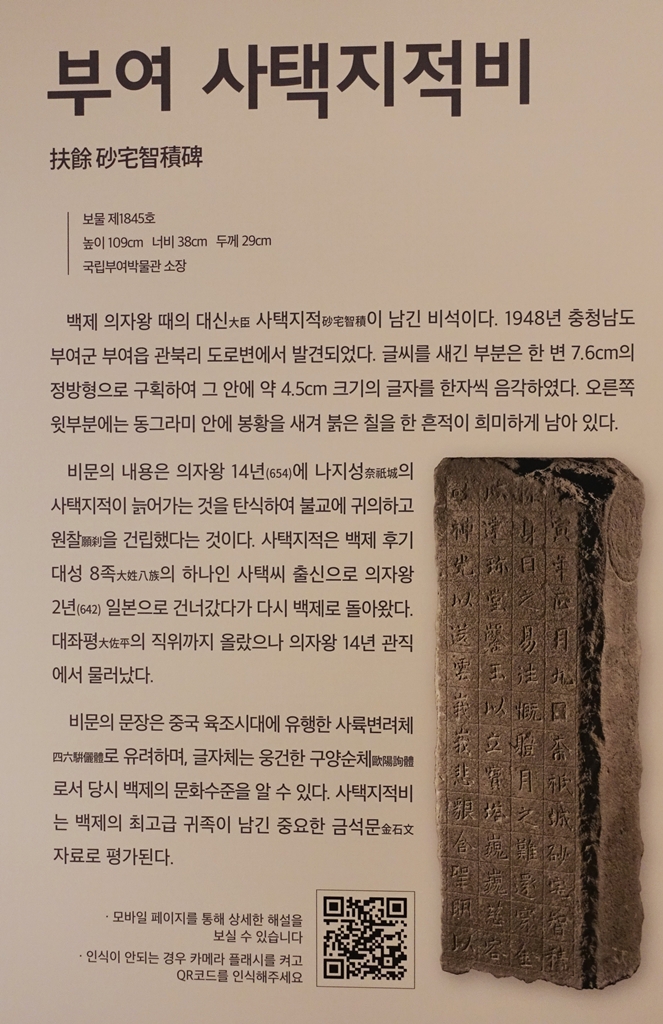 부여 사택지적비
扶餘 砂宅智積碑
보물 제1845호
높이 109cm 너비 38cm 두께 29cm
국립부여박물관 소장
백제 의자왕 때의 대신大臣 사택지적砂宅智積이 남긴 비석이다. 1948년 충청남도
부여군 부여읍 관북리 도로변에서 발견되었다. 글씨를 새긴 부분은 한 변 7.6cm의
정방형으로 구획하여 그 안에 약 4.5cm 크기의 글자를 한자씩 음각하였다. 오른쪽
윗부분에는 동그라미 안에 봉황을 새겨 붉은 칠을 한 흔적이 희미하게 남아 있다.
비문의 내용은 의자왕 14년(654)에 나지성奈祇城의
사택지적이 늙어가는 것을 탄식하여 불교에 귀의하고
원찰願刹을 건립했다는 것이다. 사택지적은 백제 후기
대성 8족大姓八族의 하나인 사택씨 출신으로 의자왕
2년(642) 일본으로 건너갔다가 다시 백제로 돌아왔다.
대좌평大佐平의 직위까지 올랐으나 의자왕 14년 관직
에서 물러났다.
비문의 문장은 중국 육조시대에 유행한 사륙변려체
四六騈儷體로 유려하며, 글자체는 웅건한 구양순체歐陽詢體
로서 당시 백제의 문화수준을 알 수 있다. 사택지적비
는 백제의 최고급 귀족이 남긴 중요한 금석문金石文
자료로 평가된다.
· 모바일 페이지를 통해 상세한 해설을
보실 수 있습니다
· 인식이 안되는 경우 카메라 플래시를 켜고
QR코드를 인식해주세요
寅年正月九日奈祇城砂宅智積
身日之易往慨體月之難還穿金
以建珍堂鑿玉以立寶塔巍巍慈容
神光以送雲峩峩悲貇含聖明以